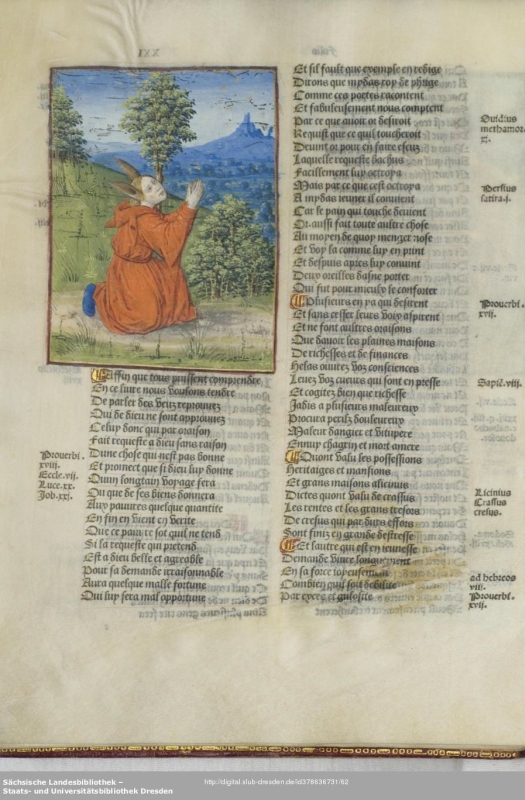 XXI
Affin que tous puissent comprendre
En ce liure nous voulons tendre
De parler des veuz reprouuez
Qui de dieu ne sont approuuez
Celuy donc qui par oraison
Fait requeste a dieu sans raison
Dune chose qui nest pas bonne
Et promect que si dieu luy donne
Quun longtain voyage fera
Ou que de ses biens donnera
Aux pauures quelque quantite
En fin en vient en verite
Que ce pain le sot quil ne tend
Si la requeste qui pretend
Est a dieu belle et agreable
Pour sa demande irraisonnable
Aura quelque malle fortune
Qui luy sera mal opportune
Prouerbi.
xviij.
Eccle. vij.
Luce. xx.
Job. xxj.
Et sil fault que exemple en redige
Dirons que mydas roy de phrige
Comme ces poetes racontent
Et fabuleusement nous comptent
Par ce que auoir or desiroit
Requist que ce quil toucheroit
Deuint or pour en faire escuz
Laquelle requeste bachus
Facillement luy octroya
Mais par ce que cest octroya
A mydas ieuner il conuient
Car le pain qui touche deuient
Or aussi fait toute aultre chose
Au moyen de quoy menger nose
Et voy la comme luy en print
Et despuis apres luy conuint
Deux oreilles dasne porter
Qui fut pour mieulx le conforter
Plusieurs en ya qui desirent
Et sans cesser leurs voix aspirent
Et ne font aultres oraisons
Que dauoir les plaines maisons
De richesses et de finances
Helas ouurez voz consciences
Leuez voz cueurs qui sont en presse
Et cogitez bien que richesse
Jadis a plusieurs maleureux
Procura perilz douloureux
Maleur dangier et vitupere
Ennuy chagrin et mort amere
Quont valu les possessions
Heritaiges et mansions
Et grans maisons
Dictes quont valu de crassus
Les rentes et les grans tresors
De cresus qui par durs effors
Sont finiz en grande destresse
Et lautre qui est en ieunesse
Demande viure longuement
En sa force ioyeusement
Combien quil soit debilite
Par exces et gulosite
Ouidius
methamor.
xj.
Persius
satira.
Prouerbi.
xvij.
Sapie. viij.
Licinius
Crassus
cresus.
ad hebreos
viij.
Prouerbi.
xvij.
Sächsische Landesbibliothek –
Staats- und Universitätsbibliothek Dresden
http://digital.slub-dresden.de/id378636731/62